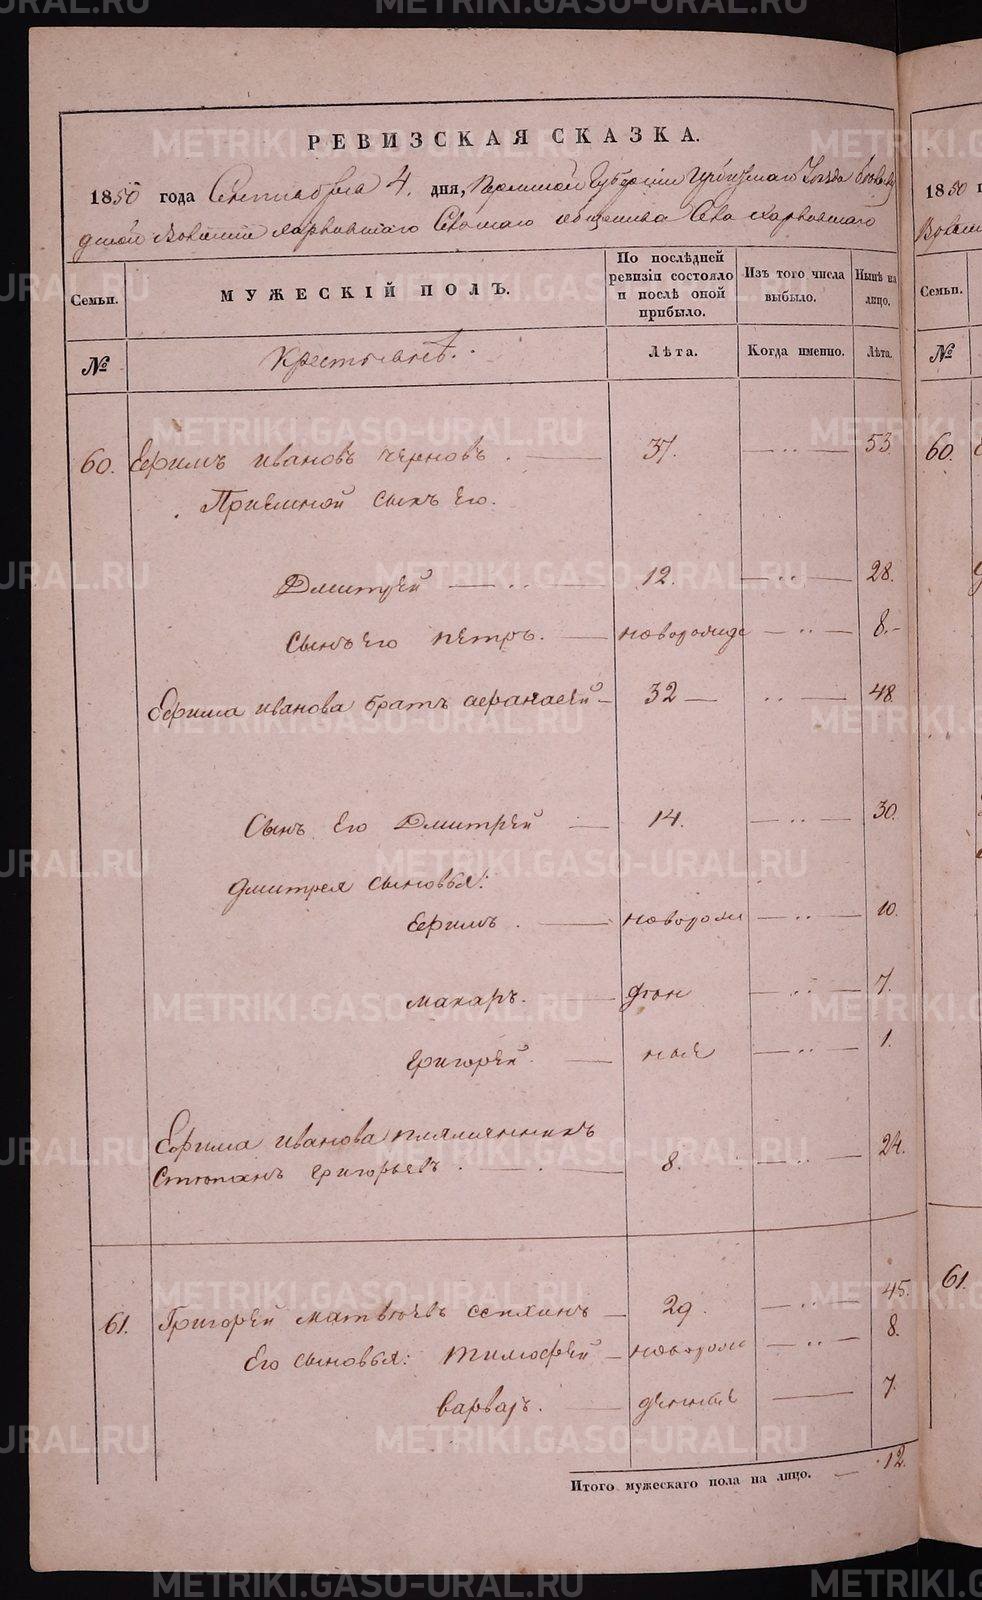 METRIKI.GASO-URAL.RU
РЕВИЗСКАЯ СКАЗКА.
1850 года Сентября 4. дня, Пермской Губернии Ирбитскаго Уезда
волости харловскаго Сельскаго общества Села харловскаго
Семьи.
МУЖЕСКІЙ ПОЛЪ.
По послѣдней ревизіи состояло и послѣ оной прибыло.
Изъ того числа выбыло.
Нынѣ на лицо.
№
Крестьянѣ.
Лѣта.
Когда именно.
Лѣта.
60. Ефимъ ивановъ черновъ. 37. 53
Приемной сынъ Его.
Дмитрей 12. 28.
Сынъ Его петръ. новорожде 8.
Ефима иванова братъ афанасей 32 48.
Сынъ Его Дмитрей 14. 30.
дмитрея сыновья:
Ефимъ. новорож 10.
макаръ. ден 7.
григорей ные 1.
Ефима иванова племянникъ
Степанъ григорьевъ. 8. 24.
61. Григорей матвѣевъ 29. 45.
Его сыновья: тимофей новорож 8.
варвар. денные 7.
Итого мужескаго пола на лицо. 12.
1850
Семьи.
№
60.
61.